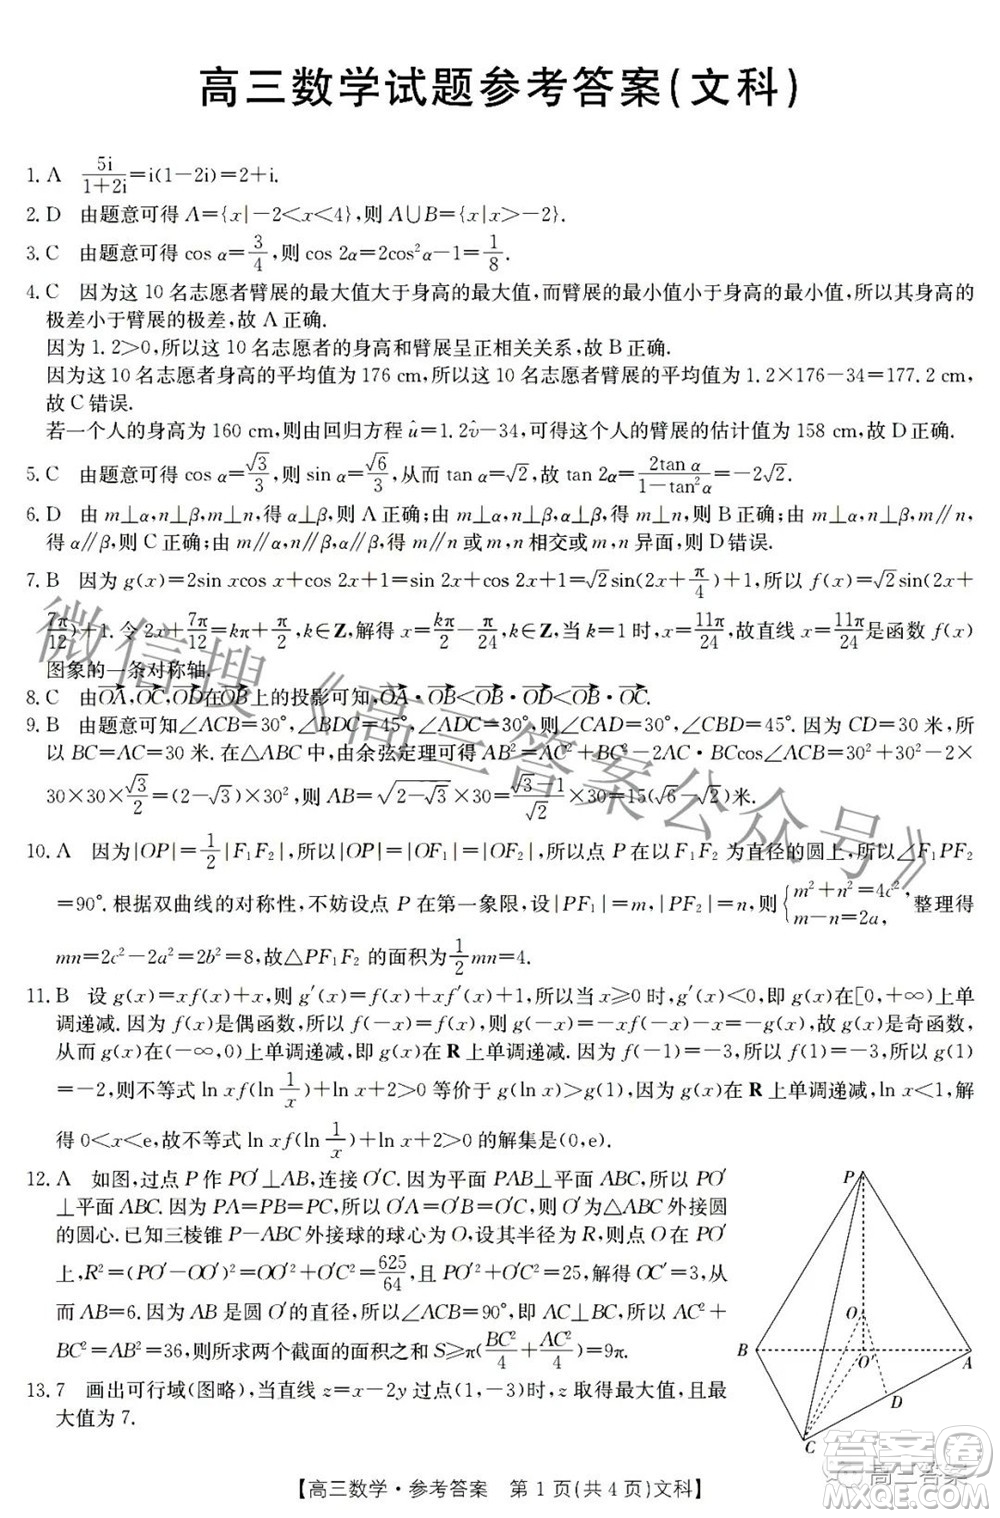 高三数学试题参考答案(文科)
1. A　5i/(1+2i)=i(1-2i)=2+i.
2. D　由题意可得 A={x|-2<x<4},则 A∪B={x|x>-2}.
3. C　由题意可得 cos α=3/4,则 cos 2α=2cos²α-1=1/8.
4. C　因为这 10 名志愿者臂展的最大值大于身高的最大值,而臂展的最小值小于身高的最小值,所以其身高的
极差小于臂展的极差,故 A 正确.
因为 1.2>0,所以这 10 名志愿者的身高和臂展呈正相关关系,故 B 正确.
因为这 10 名志愿者身高的平均值为 176 cm,所以这 10 名志愿者臂展的平均值为 1.2×176-34=177.2 cm,
故 C 错误.
若一个人的身高为 160 cm,则由回归方程 û=1.2v̂-34,可得这个人的臂展的估计值为 158 cm,故 D 正确.
5. C　由题意可得 cos α=√3/3,则 sin α=√6/3,从而 tan α=√2,故 tan 2α=2tan α/(1-tan²α)=-2√2.
6. D　由 m⊥α,n⊥β,m⊥n,得 α⊥β,则 A 正确;由 m⊥α,n⊥β,α⊥β,得 m⊥n,则 B 正确;由 m⊥α,n⊥β,m∥n,
得 α∥β,故 C 正确;由 m∥α,n∥β,α∥β,得 m∥n 或 m,n 相交或 m,n 异面,则 D 错误.
7. B　因为 g(x)=2sin xcos x+cos 2x+1=√2sin(2x+π/4)+1,所以 f(x)=√2sin(2x+
7π/12)+1.令 2x+7π/12=kπ+π/2,k∈Z,解得 x=kπ/2-π/24,k∈Z,当 k=1 时,x=11π/24,故直线 x=11π/24是函数 f(x)
图象的一条对称轴.
8. C　由OA→,OC→,OD→在OB→上的投影可知,OA→·OB→<OB→·OD→<OB→·OC→.
9. B　由题意可知∠ACB=30°,∠BDC=45°,∠ACD=30°,则∠CAD=30°,∠CBD=45°.因为 CD=30 米,所
以 BC=AC=30 米.在△ABC 中,由余弦定理可得 AB²=AC²+BC²-2AC·BCcos∠ACB=30²+30²-2×
30×30×√3/2=(2-√3)×30²,则 AB=√(2-√3)×30=(√3-1)/√2×30=15(√6-√2)米.
10. A　因为|OP|=1/2|F₁F₂|,所以|OP|=|OF₁|=|OF₂|,所以点 P在以F₁F₂ 为直径的圆上,所以∠F₁PF₂
=90°.根据双曲线的对称性,不妨设点 P 在第一象限,设|PF₁|=m,|PF₂|=n,则{m²+n²=4c², m-n=2a, 整理得
mn=2c²-2a²=2b²=8,故△PF₁F₂ 的面积为1/2mn=4.
11. B　设 g(x)=xf(x)+x,则 g′(x)=f(x)+xf′(x)+1,所以当 x≥0 时,g′(x)<0,即 g(x)在[0,+∞)上单
调递减.因为 f(x)是偶函数,所以 f(-x)=f(x),所以 g(-x)=-xf(-x)-x=-g(x),故 g(x)是奇函数,
从而 g(x)在(-∞,0)上单调递减,即 g(x)在 R 上单调递减.因为 f(-1)=-3,所以 f(1)=-3,所以 g(1)
=-2,则不等式 ln xf(ln 1/x)+ln x+2>0 等价于 g(ln x)>g(1),因为 g(x)在 R 上单调递减,ln x<1,解
得 0<x<e,故不等式 ln xf(ln 1/x)+ln x+2>0 的解集是(0,e).
12. A　如图,过点 P 作 PO′⊥AB,连接 O′C.因为平面 PAB⊥平面 ABC,所以 PO′
⊥平面 ABC.因为 PA=PB=PC,所以 O′A=O′B=O′C,所以 O′为△ABC 外接圆
的圆心.已知三棱锥 P-ABC 外接球的球心为O,设其半径为 R,则点 O 在 PO′
上,R²=(PO′-OO′)²=OO′²+O′C²=625/64,且 PO′²+O′C²=25,解得 OC′=3,从
而 AB=6.因为 AB 是圆 O′的直径,所以∠ACB=90°,即 AC⊥BC,所以 AC²+
BC²=AB²=36,则所求两个截面圆的面积之和 S≥π(BC²/4+AC²/4)=9π.
13. 7　画出可行域(图略),当直线 z=x-2y 过点(1,-3)时,z 取得最大值,且最
大值为 7.
P
O
B
O′
A
D
C
【高三数学·参考答案　第 1 页(共 4 页)文科】
微信搜《高三答案公众号》
答案圈
高三答案